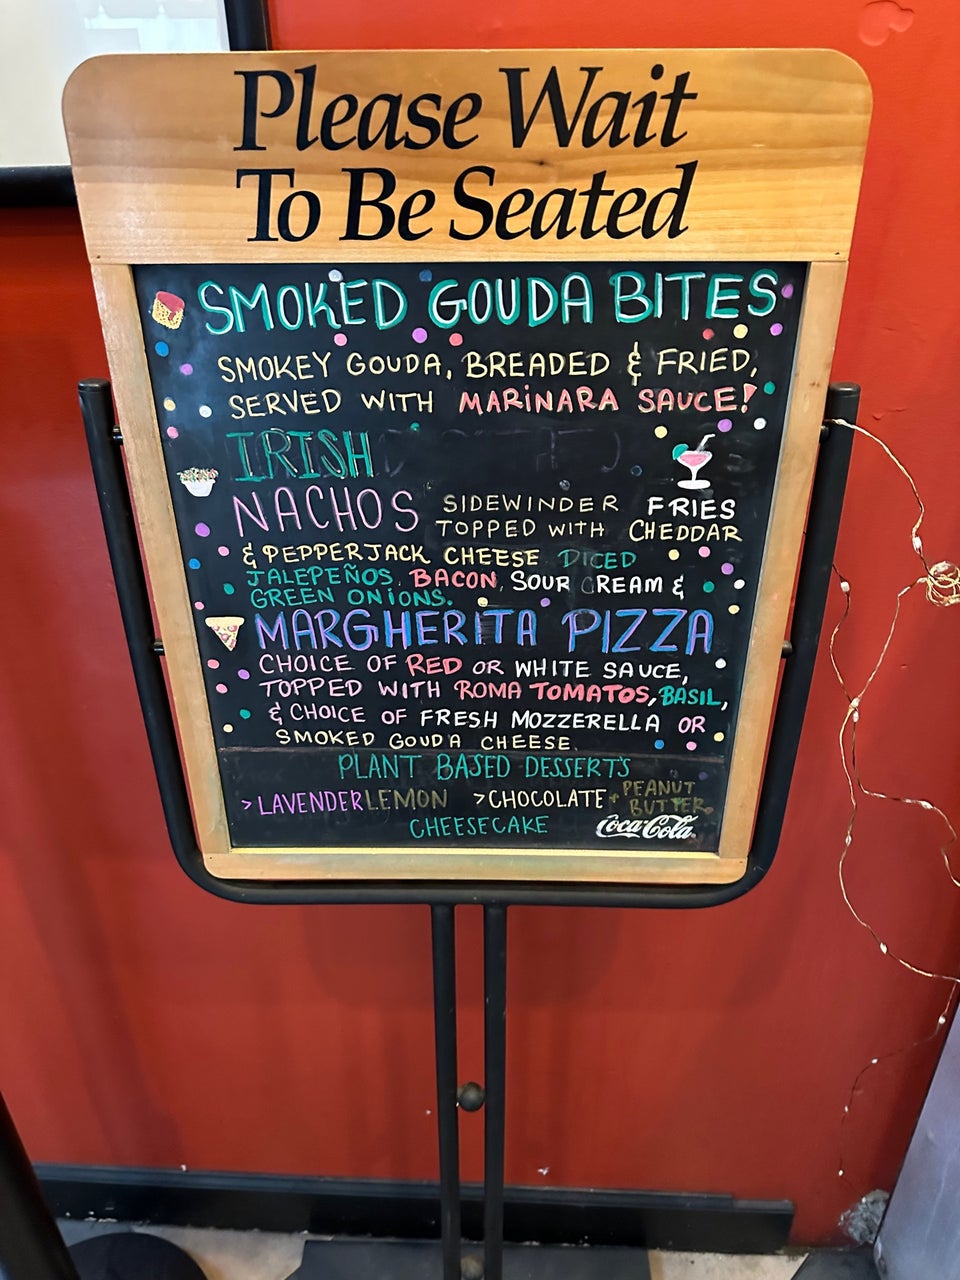 Please Wait
To Be Seated
SMOKED GOUDA BITES
SMOKEY GOUDA, BREADED & FRIED,
SERVED WITH MARINARA SAUCE!
IRISH
NACHOS SIDEWINDER FRIES
TOPPED WITH CHEDDAR
& PEPPERJACK CHEESE DICED
JALEPEÑOS, BACON, SOUR CREAM &
GREEN ONIONS.
MARGHERITA PIZZA
CHOICE OF RED OR WHITE SAUCE,
TOPPED WITH ROMA TOMATOS, BASIL,
& CHOICE OF FRESH MOZZERELLA OR
SMOKED GOUDA CHEESE.
PLANT BASED DESSERTS
>LAVENDER LEMON >CHOCOLATE + PEANUT
BUTTER
CHEESECAKE Coca-Cola